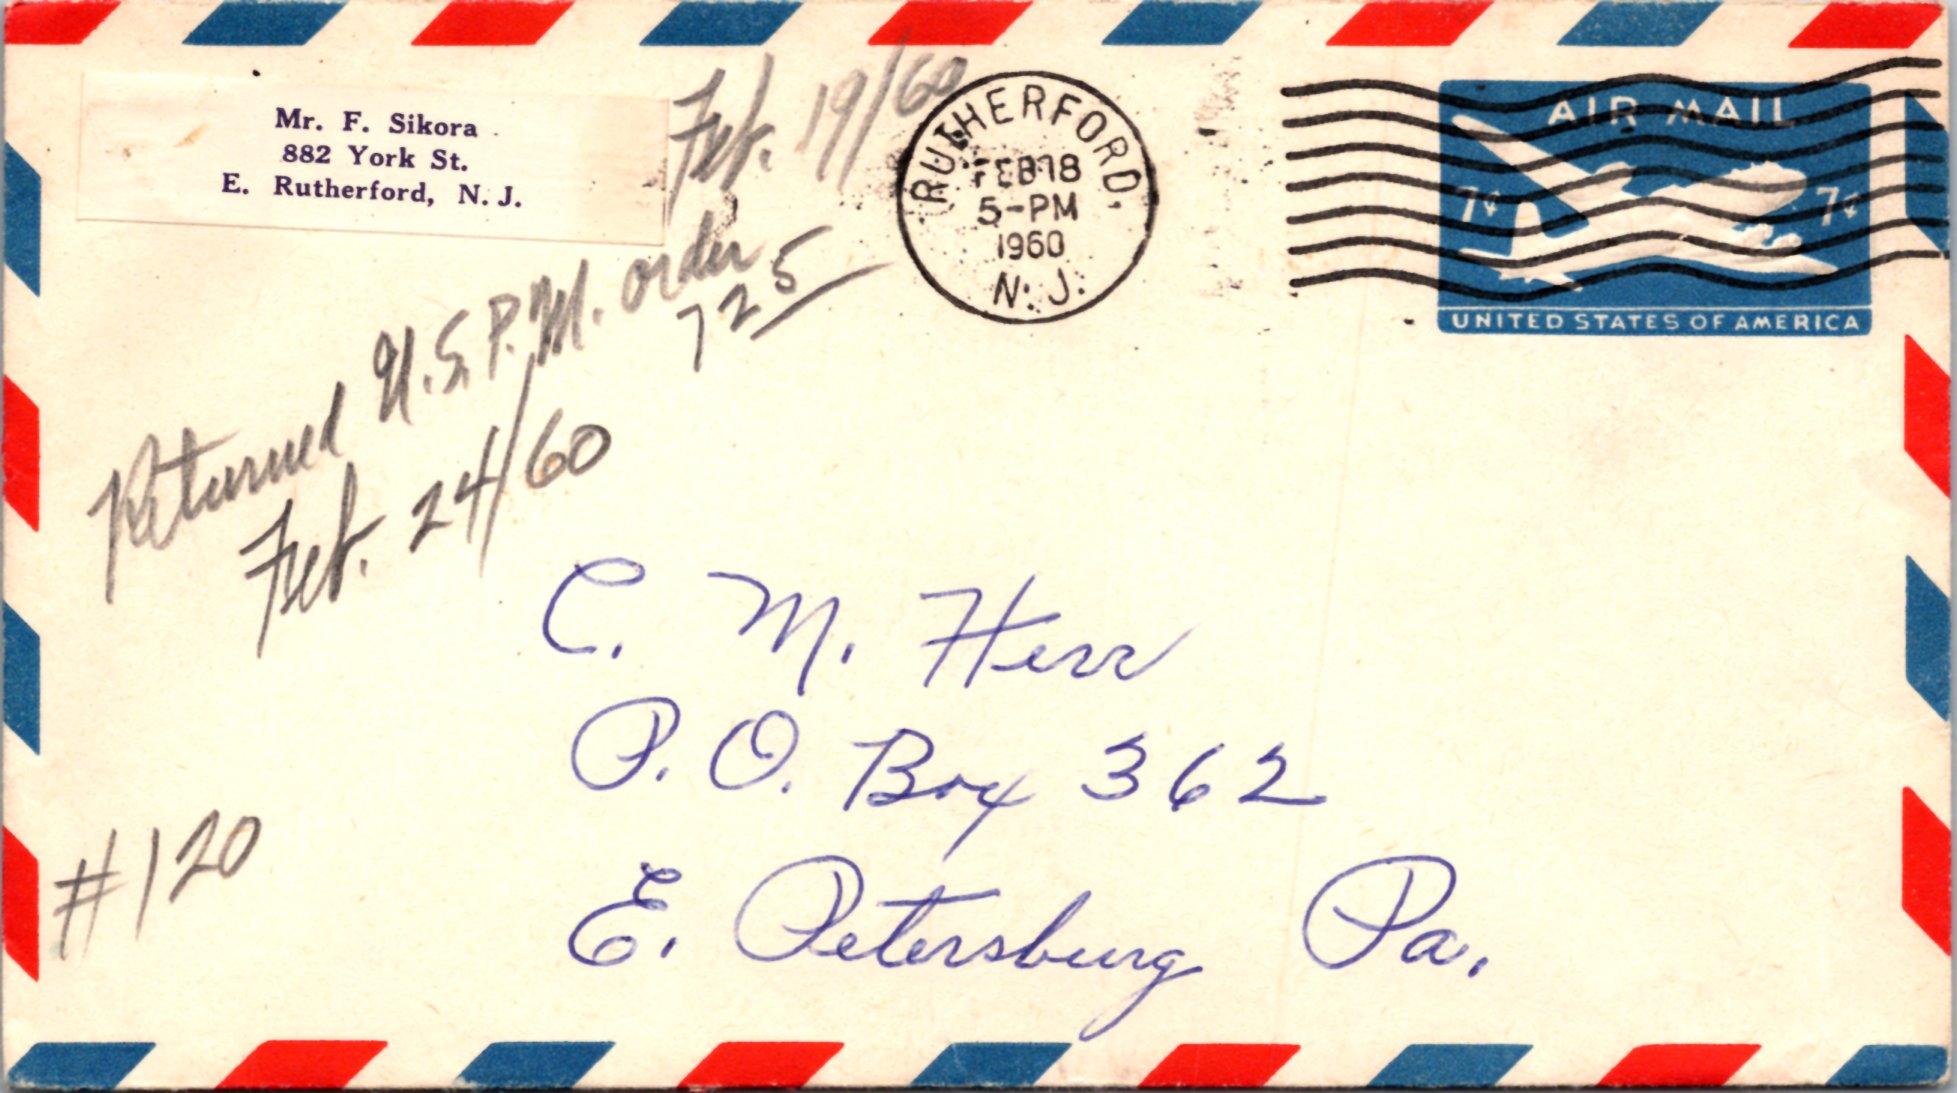 Mr. F. Sikora
882 York St.
E. Rutherford, N. J.
Feb. 19/60
RUTHERFORD,
FEB 18
5-PM
1960
N. J.
AIR MAIL
7¢ 7¢
UNITED STATES OF AMERICA
Returned U.S.P.M. order
7 25
Feb. 24/60
C. M. Herr
P. O. Box 362
E. Petersburg Pa.
#120